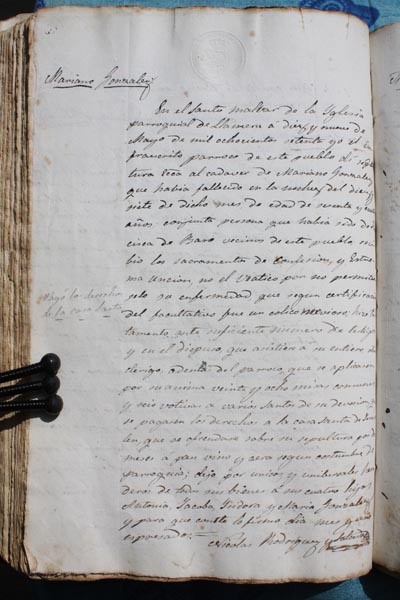 Mariano Gonzalez
En el santo
parroquial de Llamera á diez y nueve de
Mayo de mil ochocientos setenta yo el
párroco de este pueblo di
tura al cadaver de Mariano Gonzalez
que habia fallecido en la noche del diez
siete de dicho mes de edad de
años conjunta persona que habia sido de
de vecinos de este pueblo
bio los sacramentos de Confesion, y Estre
ma Uncion, no el Viatico por no permitir
selo su enfermedad que segun certificacion
del facultativo fue un colico
tamento ante suficiente numero de testigos
y en el dispuso, que asistiera a su entierro
clerigo, del parroco, que se aplicasen
por su anima veinte y ocho misas
y seis votivas a varios santos de su devocion
se pagasen los derechos a la casa santa de
len, que se ofrendase sobre su sepultura por
meses a pan vino y cera segun costumbre de
parroquia; dejo por unicos y universales
deros de todos sus bienes a sus cuatro hijos
Antonia, Jacoba, Isidora y Maria Gonzalez
y para que conste lo firmo dia mes y
espresado
Nicolas Rodriguez y
Pagó los derechos
de la casa santa